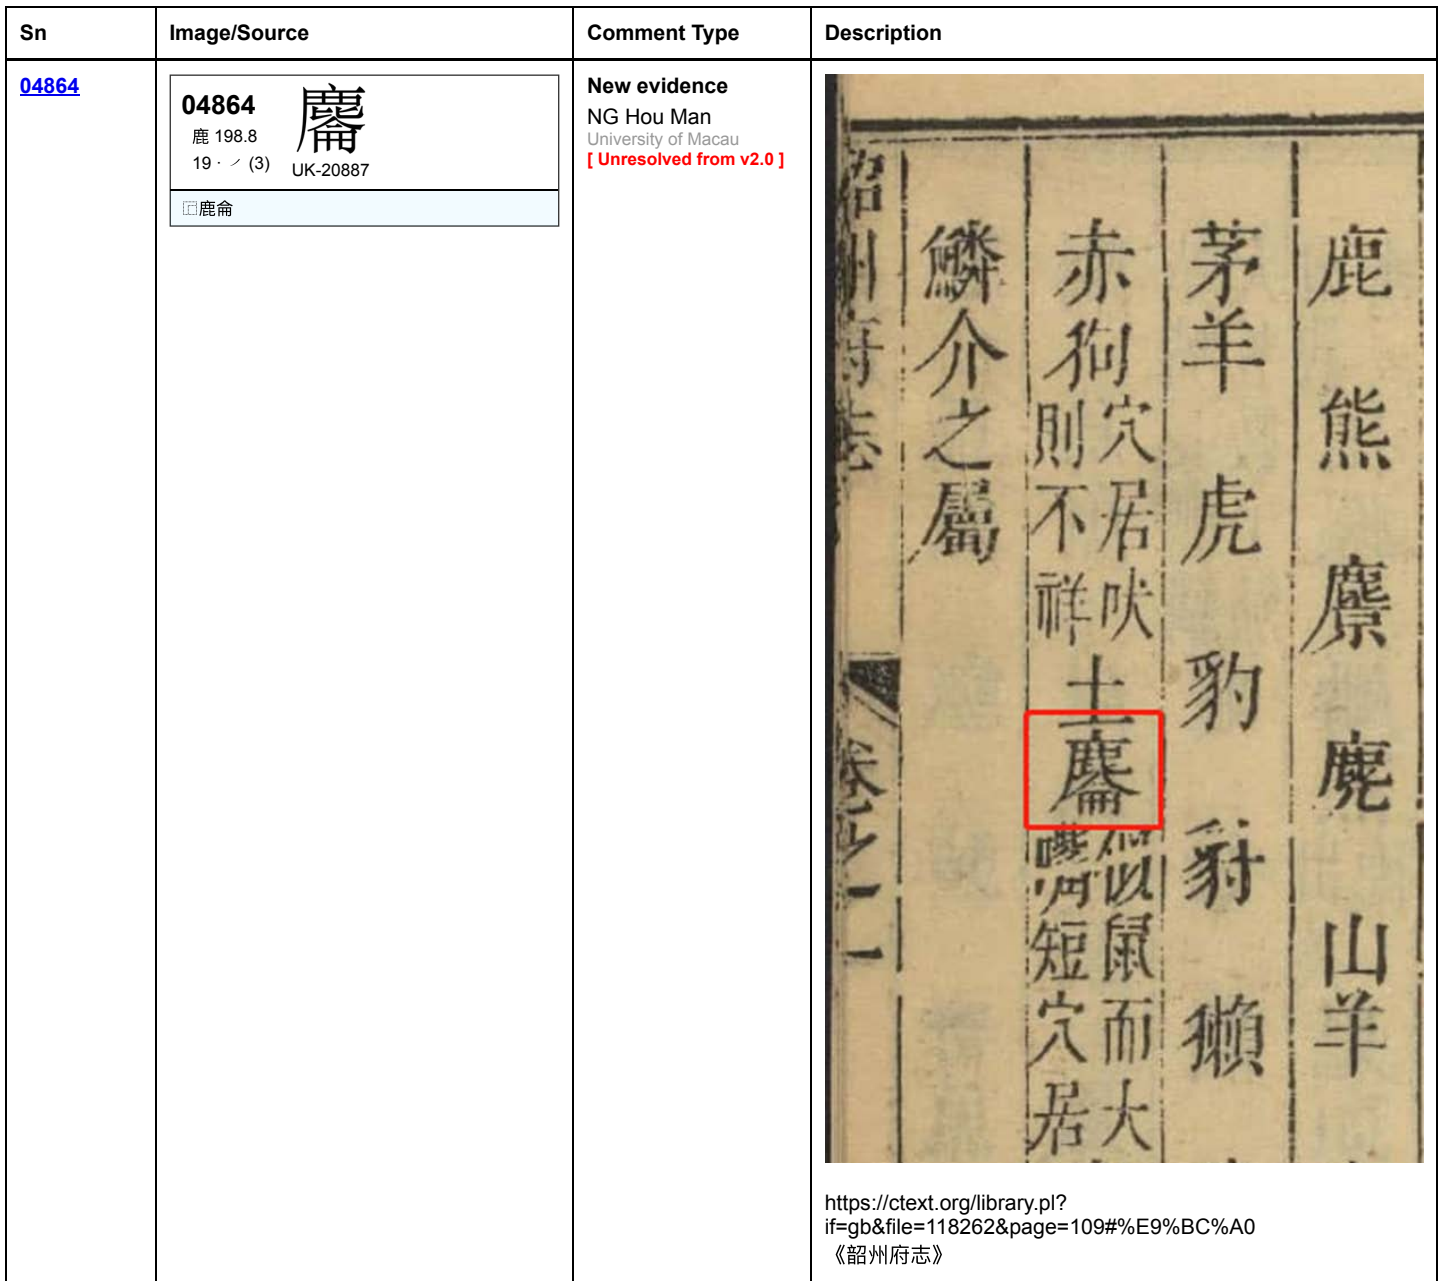 Sn Image/Source Comment Type Description
04864
04864
鹿 198.8
19 · ㇒ (3)
UK-20887
⿸鹿侖
New evidence
NG Hou Man
University of Macau
[ Unresolved from v2.0 ]
鹿 熊 麖 麂 山羊
茅羊 虎 豹 豺 獺
赤狗 穴居吠
則不祥
土⿸鹿侖 似鼠而大
嘴短穴居
鱗介之屬
韶州府志 卷之十一
https://ctext.org/library.pl?
if=gb&file=118262&page=109#%E9%BC%A0
《韶州府志》